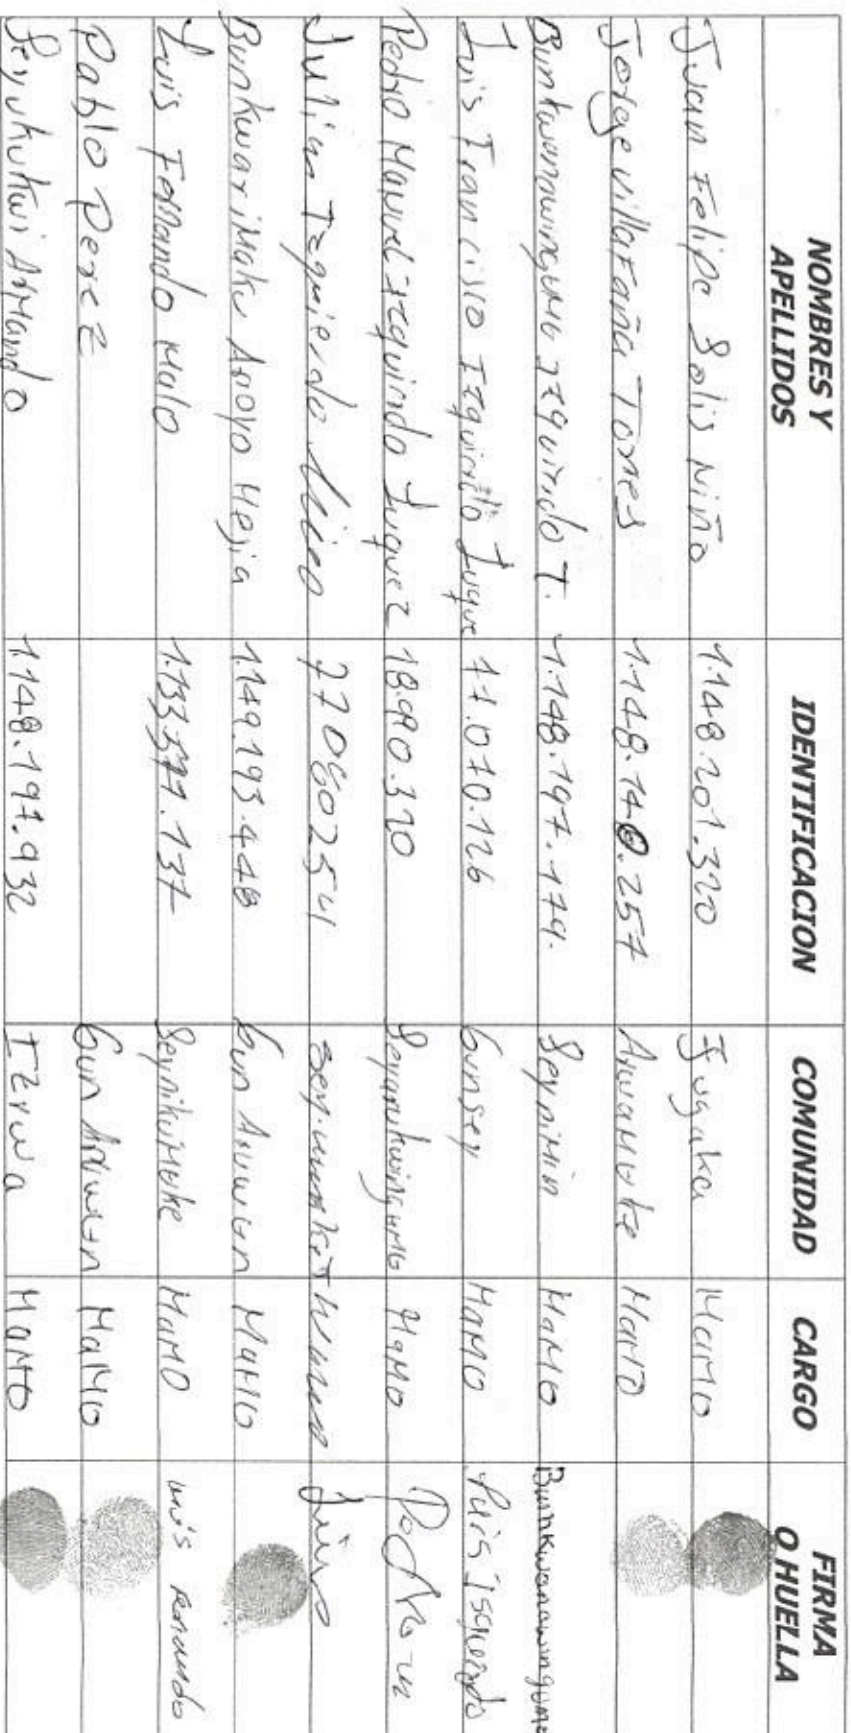 NOMBRES Y APELLIDOS IDENTIFICACION COMUNIDAD CARGO FIRMA O HUELLA
Juan Felipe Solis Niño 1.148.201.320 Jugaka MaMO
Jorge Villafaña Torres 1.148.140.257 AruaMake MaMO
BunkwanawinguMo Izquierdo T. 1.148.197.179. Seynimin MaMO Bunkwanawingumo
Luis Francisco Izquierdo Luque 77.070.126 Gunsey MaMO Luis Isquierdo
Pedro Manuel Izquierdo Luquez 18.990.310 MaMO
Julian Izquierdo 77060254
BunkwariMaku Arroyo Mejia 1.149.193.448 Gun Aruwun MaMO
Luis Fernando Malo 1.133. .137 SeynikuMuke MaMO Luis Fernando
Pablo Perez Gun Aruwun MaMO
Seynkukwi Armando 1.148.197.932 Izrwa MaMO